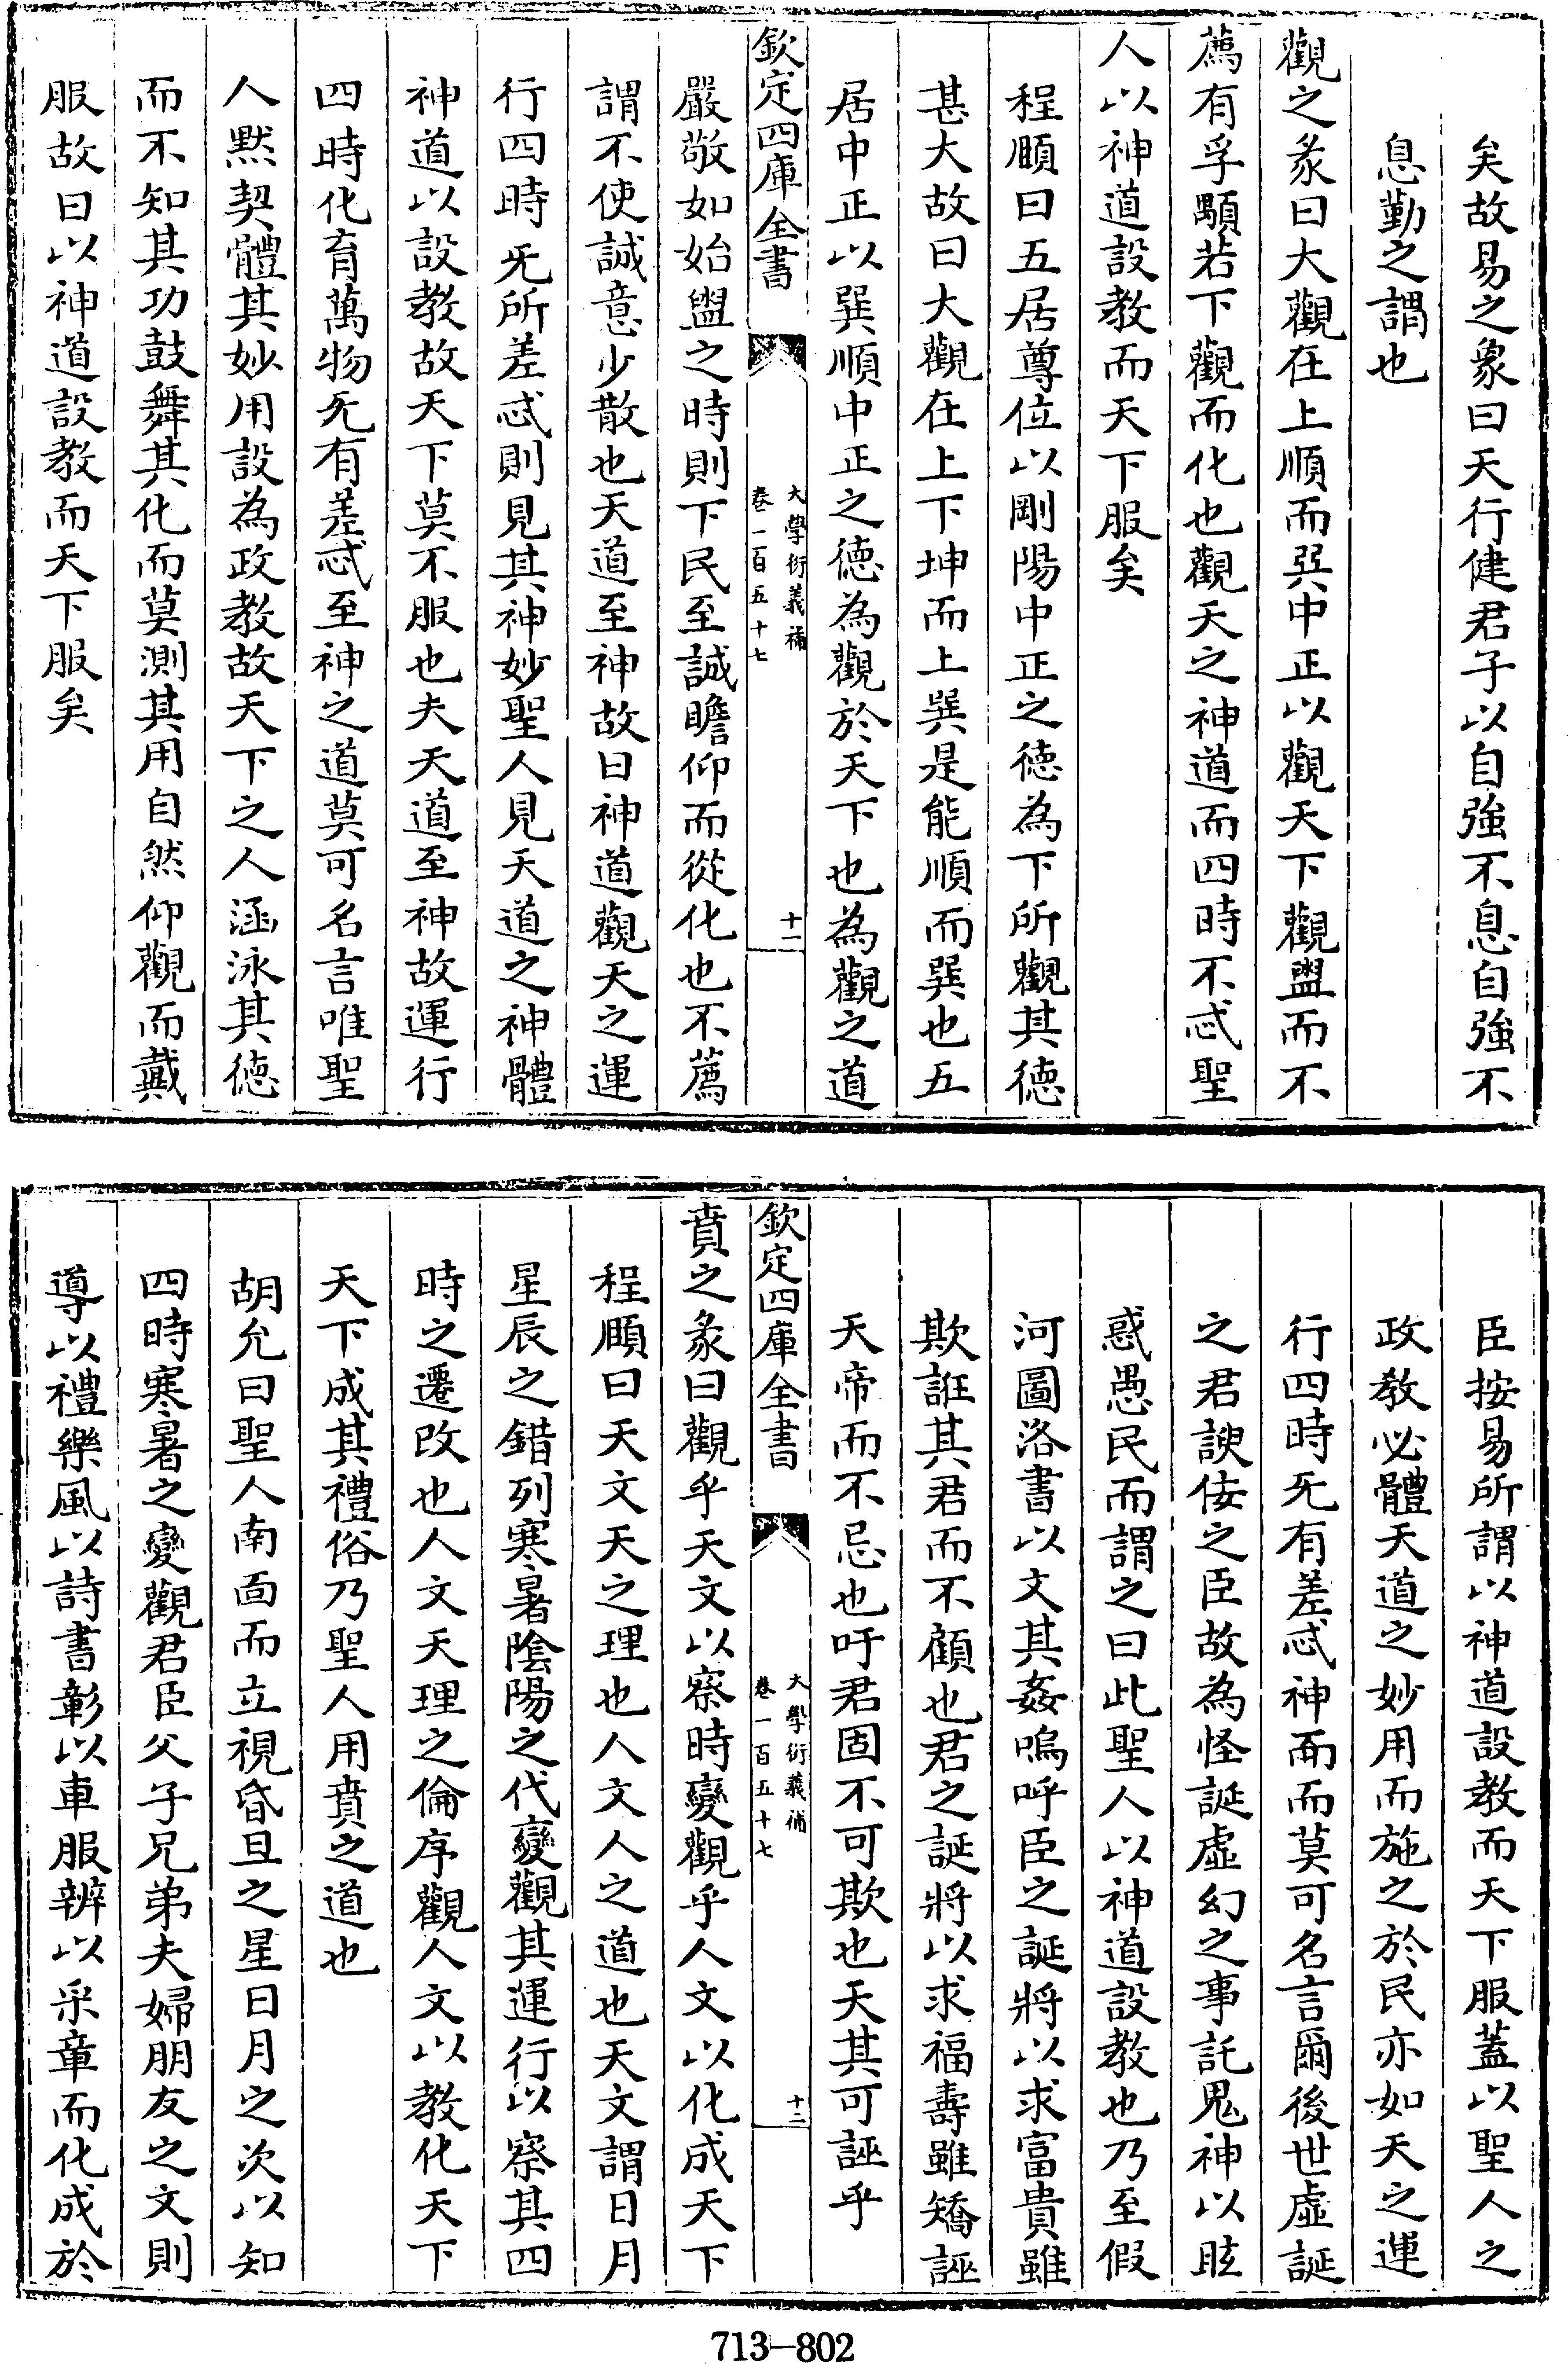 矣故易之象曰天行健君子以自強不息自強不
息勤之謂也
觀之彖曰大觀在上順而巽中正以觀天下觀盥而不
薦有孚顒若下觀而化也觀天之神道而四時不忒聖
人以神道設教而天下服矣
程頤曰五居尊位以剛陽中正之德為下所觀其德
甚大故曰大觀在上下坤而上巽是能順而巽也五
居中正以巽順中正之德為觀於天下也為觀之道
欽定四庫全書
大學衍義補
卷一百五十七
十一
嚴敬如始盥之時則下民至誠瞻仰而從化也不薦
謂不使誠意少散也天道至神故曰神道觀天之運
行四時旡所差忒則見其神妙聖人見天道之神體
神道以設教故天下莫不服也夫天道至神故運行
四時化育萬物旡有差忒至神之道莫可名言唯聖
人黙契體其妙用設為政教故天下之人涵泳其徳
而不知其功鼓舞其化而莫測其用自然仰觀而戴
服故曰以神道設教而天下服矣
臣按易所謂以神道設教而天下服蓋以聖人之
政教必體天道之妙用而施之於民亦如天之運
行四時旡有差忒神而而莫可名言爾後世虛誕
之君諛佞之臣故為怪誕虛幻之事託鬼神以眩
惑愚民而謂之曰此聖人以神道設教也乃至假
河圖洛書以文其姦嗚呼臣之誕將以求富貴雖
欺誑其君而不顧也君之誕將以求福壽雖矯誣
天帝而不忌也吁君固不可欺也天其可誣乎
欽定四庫全書
大學衍義補
卷一百五十七
十二
賁之彖曰觀乎天文以察時變觀乎人文以化成天下
程頤曰天文天之理也人文人之道也天文謂日月
星辰之錯列寒暑陰陽之代變觀其運行以察其四
時之遷改也人文天理之倫序觀人文以教化天下
天下成其禮俗乃聖人用賁之道也
胡允曰聖人南面而立視昏旦之星日月之次以知
四時寒暑之變觀君臣父子兄弟夫婦朋友之文則
導以禮樂風以詩書彰以車服辨以采章而化成於
713-802